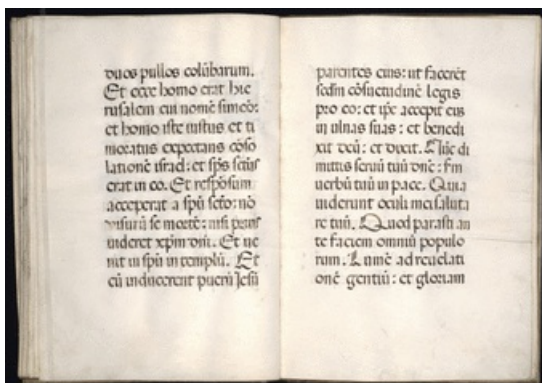 duos pullos colūbarum.
Et ecce homo erat hie
rusalem cui nomē simeō:
et homo iste iustus et ti
moratus expectans cōso
lationē israel: et sp̄s sc̄tus
erat in eo. Et respōsum
acceperat a spū sc̄to: nō
visurū se mortē: nisi prius
videret xp̄m dn̄i. Et ve
nit in spū in templū. Et
cū inducerent puerū Jesū
parentes eius: ut facerēt
scd̄m cōsuetudinē legis
pro eo: et ip̄e accepit eū
in ulnas suas: et benedi
xit deū: et dixit. Nūc di
mittis servū tuū dn̄e: s̄m
verbū tuū in pace. Quia
viderunt oculi mei saluta
re tuū. Quod parasti an
te faciem omniū populo
rum. Lumē ad revelati
onē gentiū: et gloriam